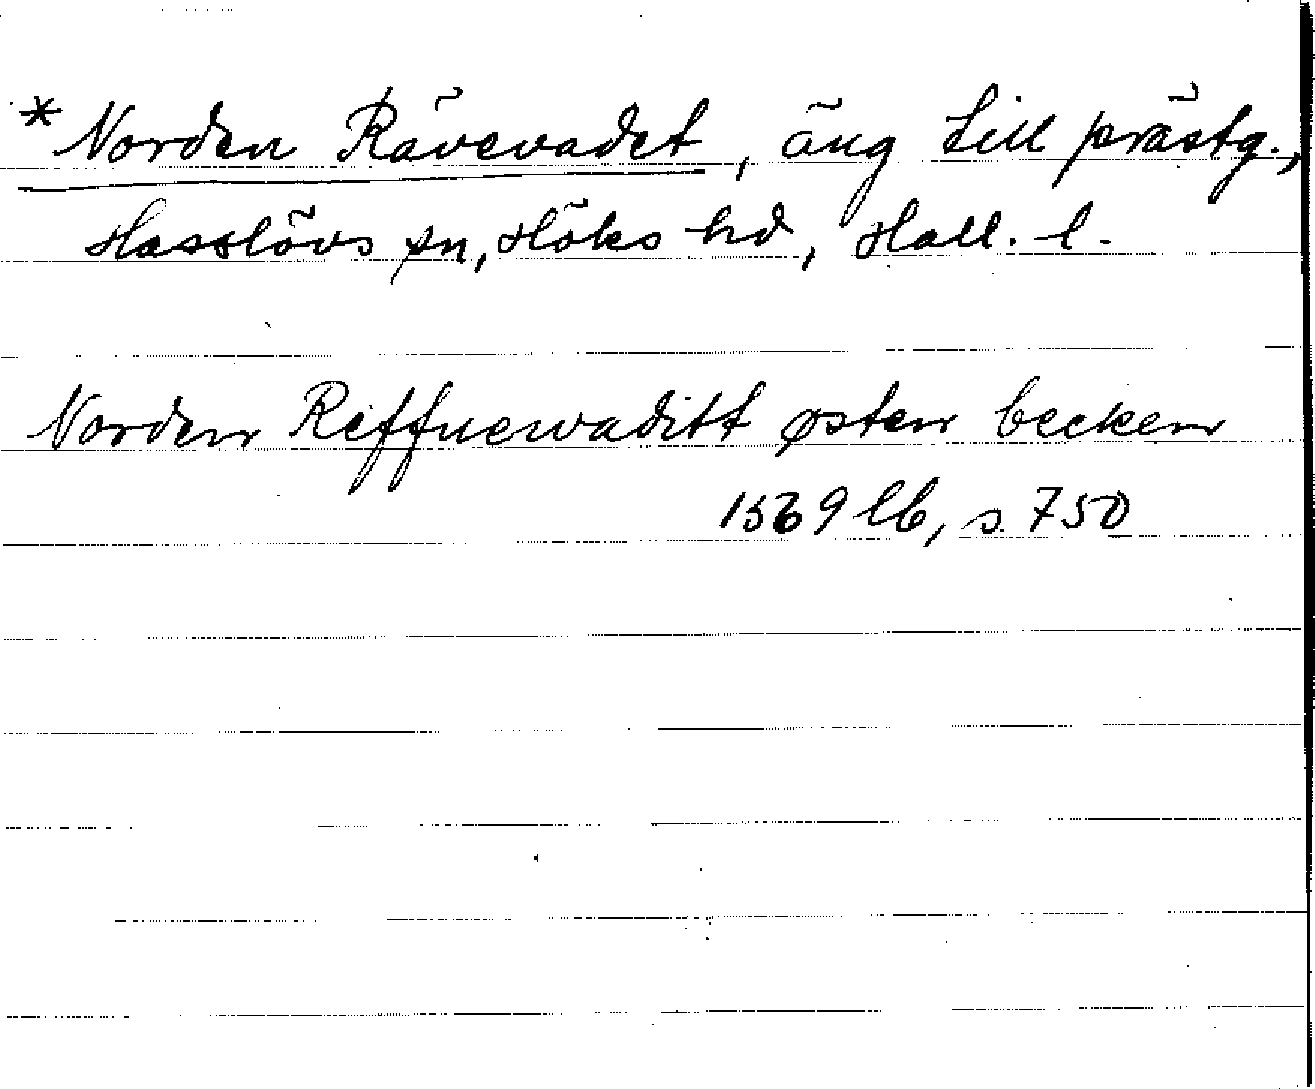 *Norden Rävevadet, äng till prästg.,
Hasslövs sn, Höks hd, Hall. l.
Norden Reffuewaditt østen becken
1569 lb, s. 750